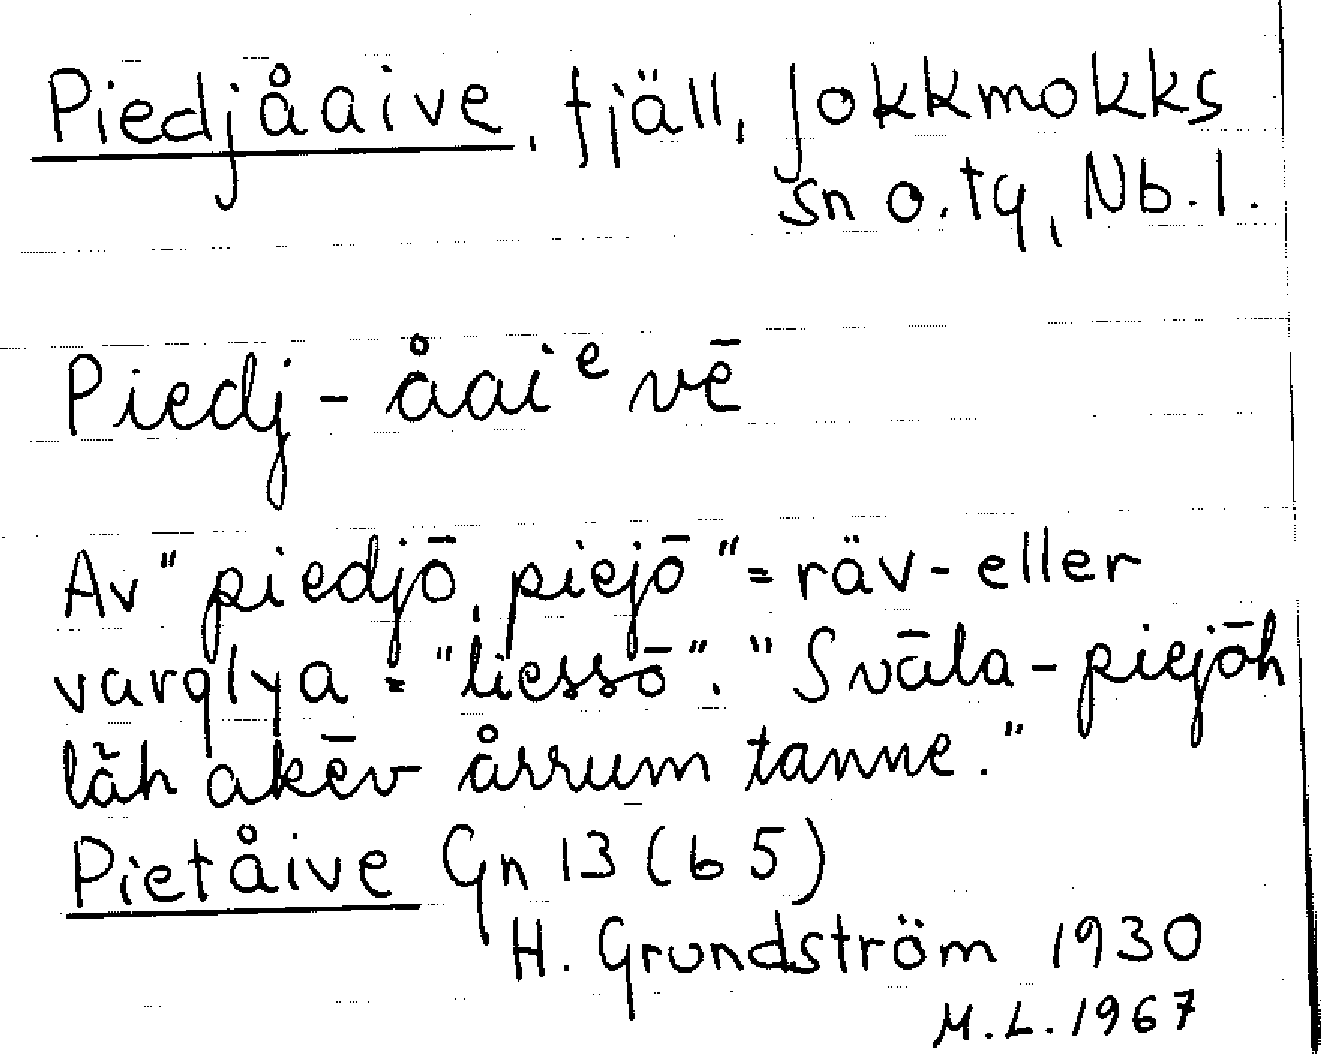 Piedjåaive, fjäll, Jokkmokks
sn o. ty, Nb. l.
Piedj - åaiᵉvē
Av "piedjō, piejō" = räv- eller
varglya = "liessō". "Svāla-piejōh
lǟh akēv årrum tanne."
Pietåive Gn 13 (b 5)
H. Grundström 1930
M. L. 1967